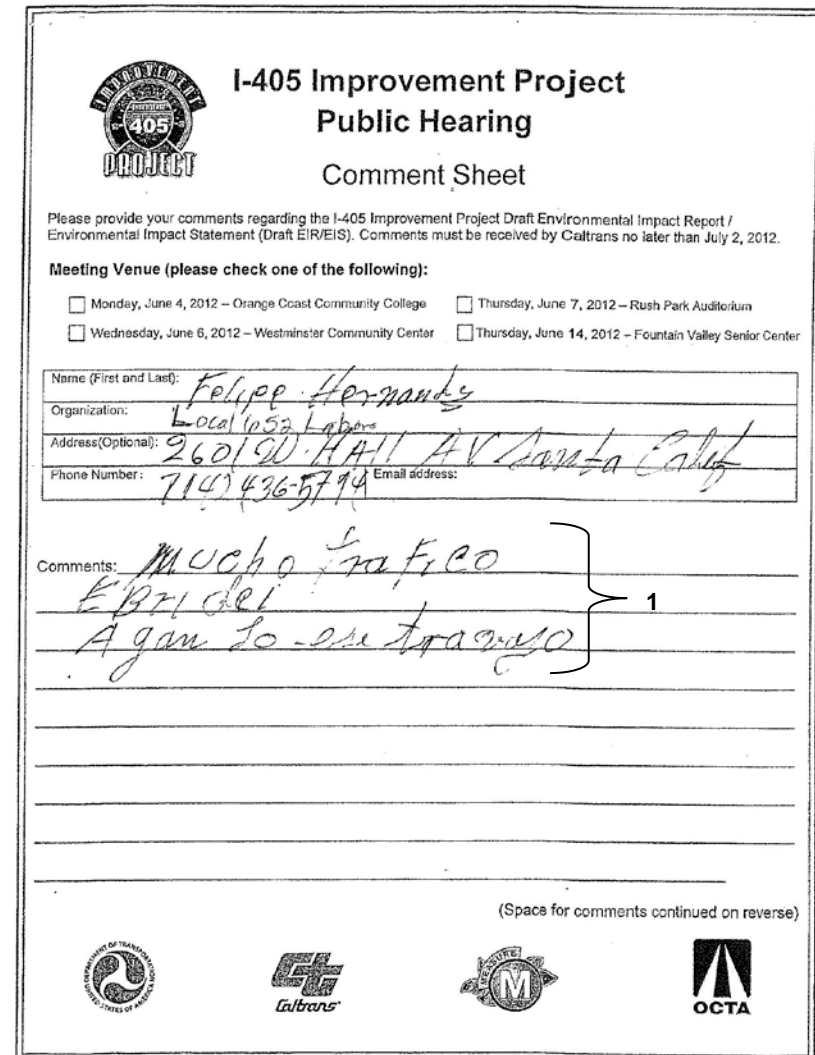 IMPROVEMENT
405
PROJECT
I-405 Improvement Project
Public Hearing
Comment Sheet
Please provide your comments regarding the I-405 Improvement Project Draft Environmental Impact Report /
Environmental Impact Statement (Draft EIR/EIS). Comments must be received by Caltrans no later than July 2, 2012.
Meeting Venue (please check one of the following):
Monday, June 4, 2012 – Orange Coast Community College
Thursday, June 7, 2012 – Rush Park Auditorium
Wednesday, June 6, 2012 – Westminster Community Center
Thursday, June 14, 2012 – Fountain Valley Senior Center
Name (First and Last): Felipe Hernandz
Organization: Local
Address(Optional): 2601 W. HAll AV Santa Calif
Phone Number: 714) 436-5794 Email address:
Comments: Mucho Trafico
Agan Lo ese travajo
1
(Space for comments continued on reverse)
DEPARTMENT OF TRANSPORTATION
UNITED STATES OF AMERICA
Caltrans
MEASURE
M
OCTA